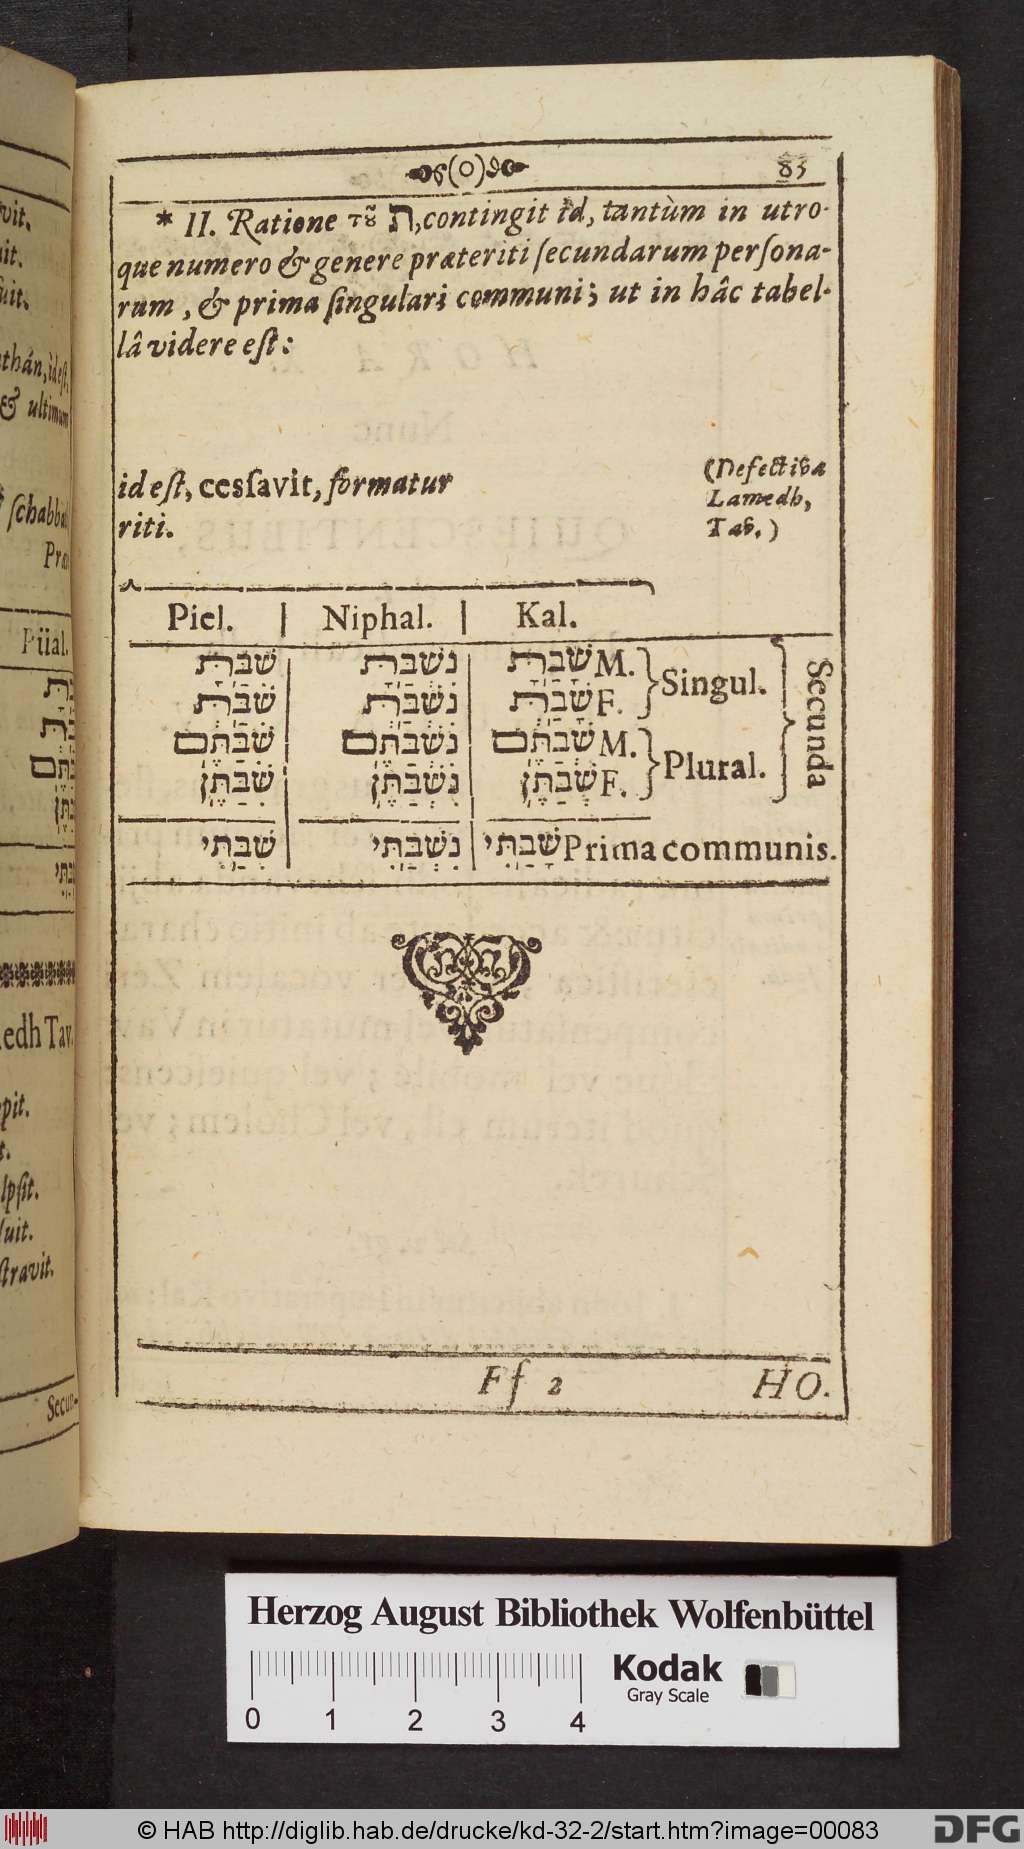 83
* II. Ratione τȣ̃ ת, contingit id, tantùm in utro-
que numero & genere præteriti ſecundarum perſona-
rum, & prima ſingulari communi; ut in hâc tabel-
lâ videre eſt:
id eſt, cesſavit, formatur
riti.
(Defectiva
Lamedh,
Tav.)
Piel. | Niphal. | Kal.
שִׁבַּתָּ נִשְׁבַּתָּ שָׁבַתָּ M.
שִׁבַּתְּ נִשְׁבַּתְּ שָׁבַתְּ F.
Singul.
שִׁבַּתֶּם נִשְׁבַּתֶּם שְׁבַתֶּם M.
שִׁבַּתֶּן נִשְׁבַּתֶּן שְׁבַתֶּן F.
Plural.
Secunda
שִׁבַּתִּי נִשְׁבַּתִּי שָׁבַתִּי Prima communis.
Ff 2 HO.
vit.
it.
uit.
thán, id eſt,
& ultimum
ſchabba
Præ
Püal.
edh Tav.
pit.
lpſit.
ſuit.
ſtravit.
Secun-
Herzog August Bibliothek Wolfenbüttel
Kodak
Gray Scale
0 1 2 3 4
© HAB http://diglib.hab.de/drucke/kd-32-2/start.htm?image=00083
DFG